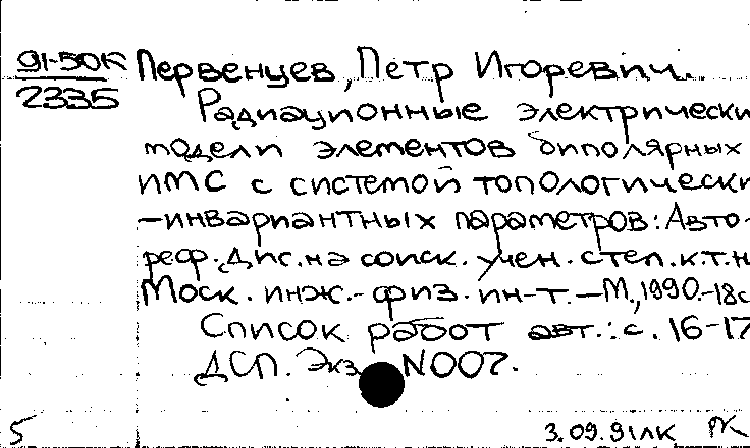 91-50К
2335
Первенцев, Пётр Игоревич.
Радиационные электрически
модели элементов биполярных
ИМС с системой топологически
-инвариантных параметров: Авто-
реф. дис. на соиск. учен. степ. к.т.н
Моск. инж.-физ. ин-т. – М., 1990.-18с
Список работ авт.: с. 16-17
ДСП. Экз. N007.
5
3.09.91ЛК РК